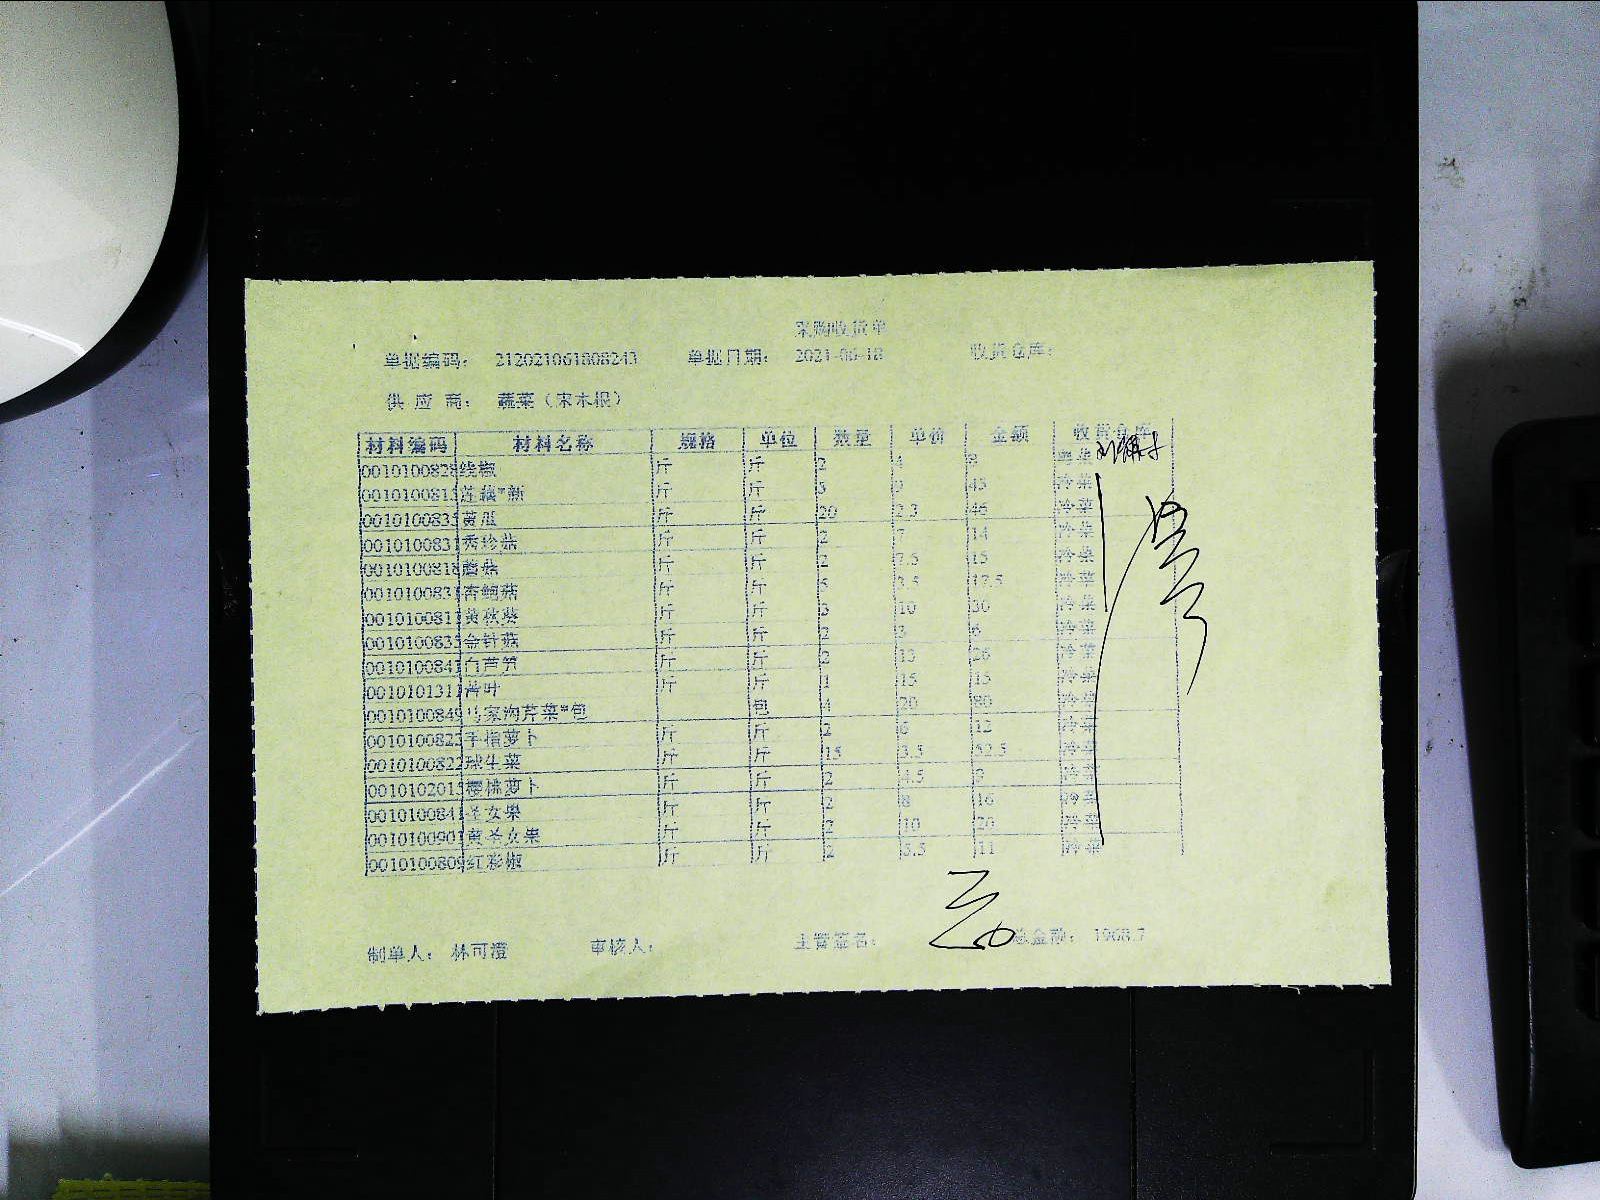 采购收货单
单据编码： 212021061808243 单据日期： 2021-06-18 收货仓库：
供 应 商： 蔬菜（宋木根）
材料编码 材料名称 规格 单位 数量 单价 金额 收货仓库
0010100828 烧椒 斤 斤 2 4 8
0010100815 莲藕*新 斤 斤 5 9 45 冷菜
0010100835 黄瓜 斤 斤 20 2.3 46 冷菜
0010100831 秀珍菇 斤 斤 2 7 14 冷菜
0010100818 蘑菇 斤 斤 2 7.5 15 冷菜
0010100831 杏鲍菇 斤 斤 5 3.5 17.5 冷菜
0010100811 黄秋葵 斤 斤 3 10 30 冷菜
0010100835 金针菇 斤 斤 2 3 6 冷菜
0010100841 白芦笋 斤 斤 2 13 26 冷菜
0010101311 苦叶 斤 斤 1 15 15 冷菜
0010100849 马家沟芹菜*包 包 4 20 80 冷菜
0010100823 手指萝卜 斤 斤 2 6 12 冷菜
0010100822 球生菜 斤 斤 15 3.5 52.5 冷菜
0010102015 樱桃萝卜 斤 斤 2 4.5 9 冷菜
0010100841 圣女果 斤 斤 2 8 16 冷菜
0010100901 黄圣女果 斤 斤 2 10 20 冷菜
0010100809 红彩椒 斤 斤 2 5.5 11 冷菜
制单人： 林可澄 审核人： 主管签名： 总金额： 1968.7